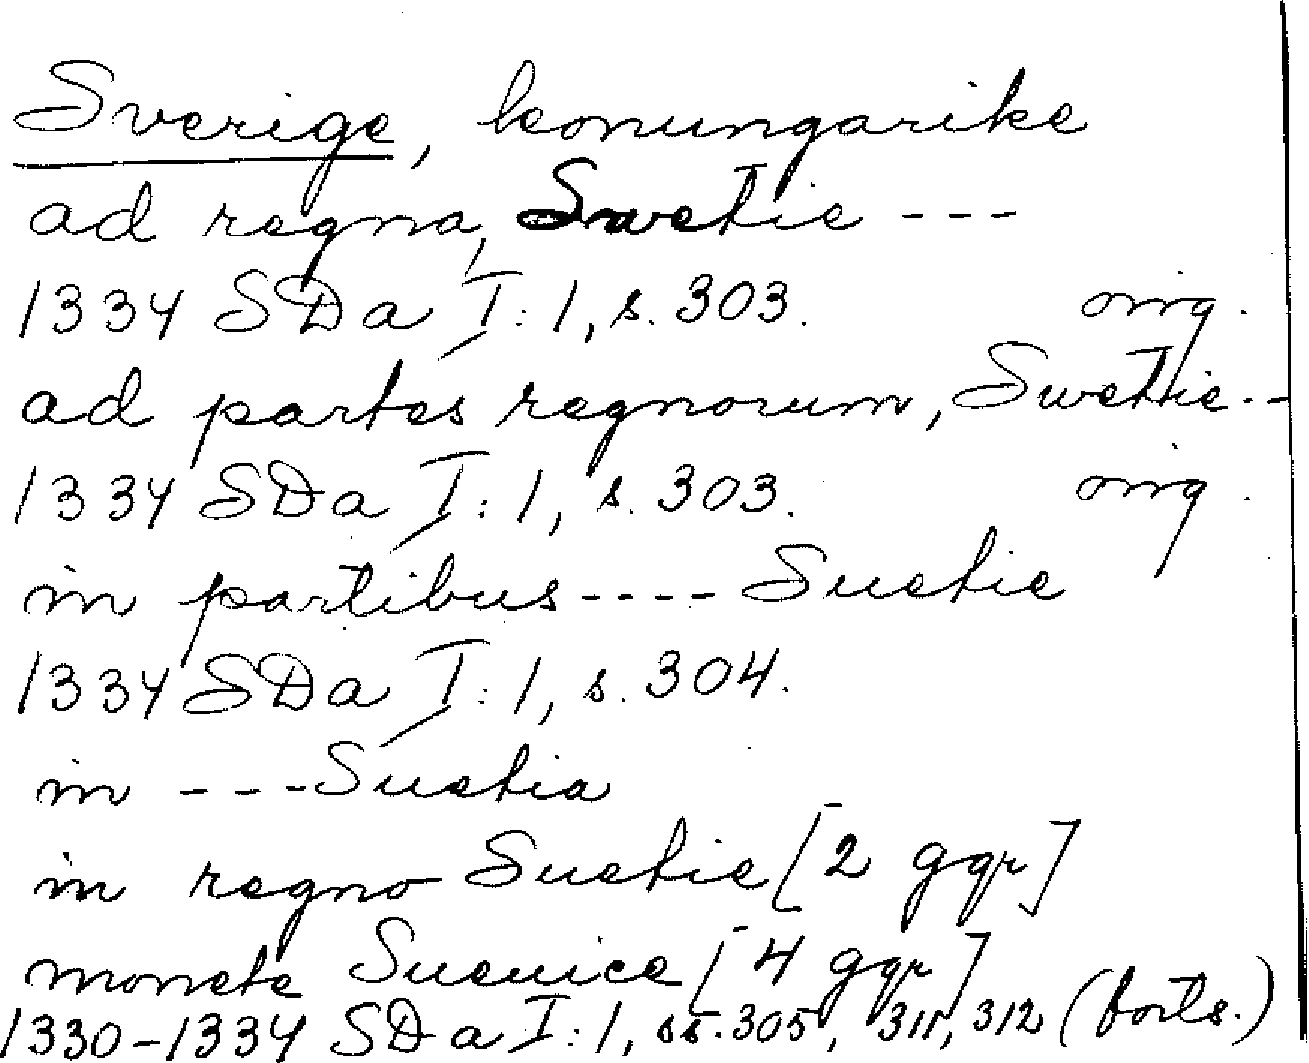 Sverige, konungarike
ad regna, Swetie ---
1334 SDa I:1, s. 303. orig.
ad partes regnorum, Swethie --
1334 SDa I:1, s. 303. orig.
in partibus ---- Suetie
1334 SDa I:1, s. 304.
in --- Suetia
in regno Suetie [2 ggr]
monete Sueuice [4 ggr]
1330-1334 SDa I:1, ss. 305, 311, 312 (forts.)